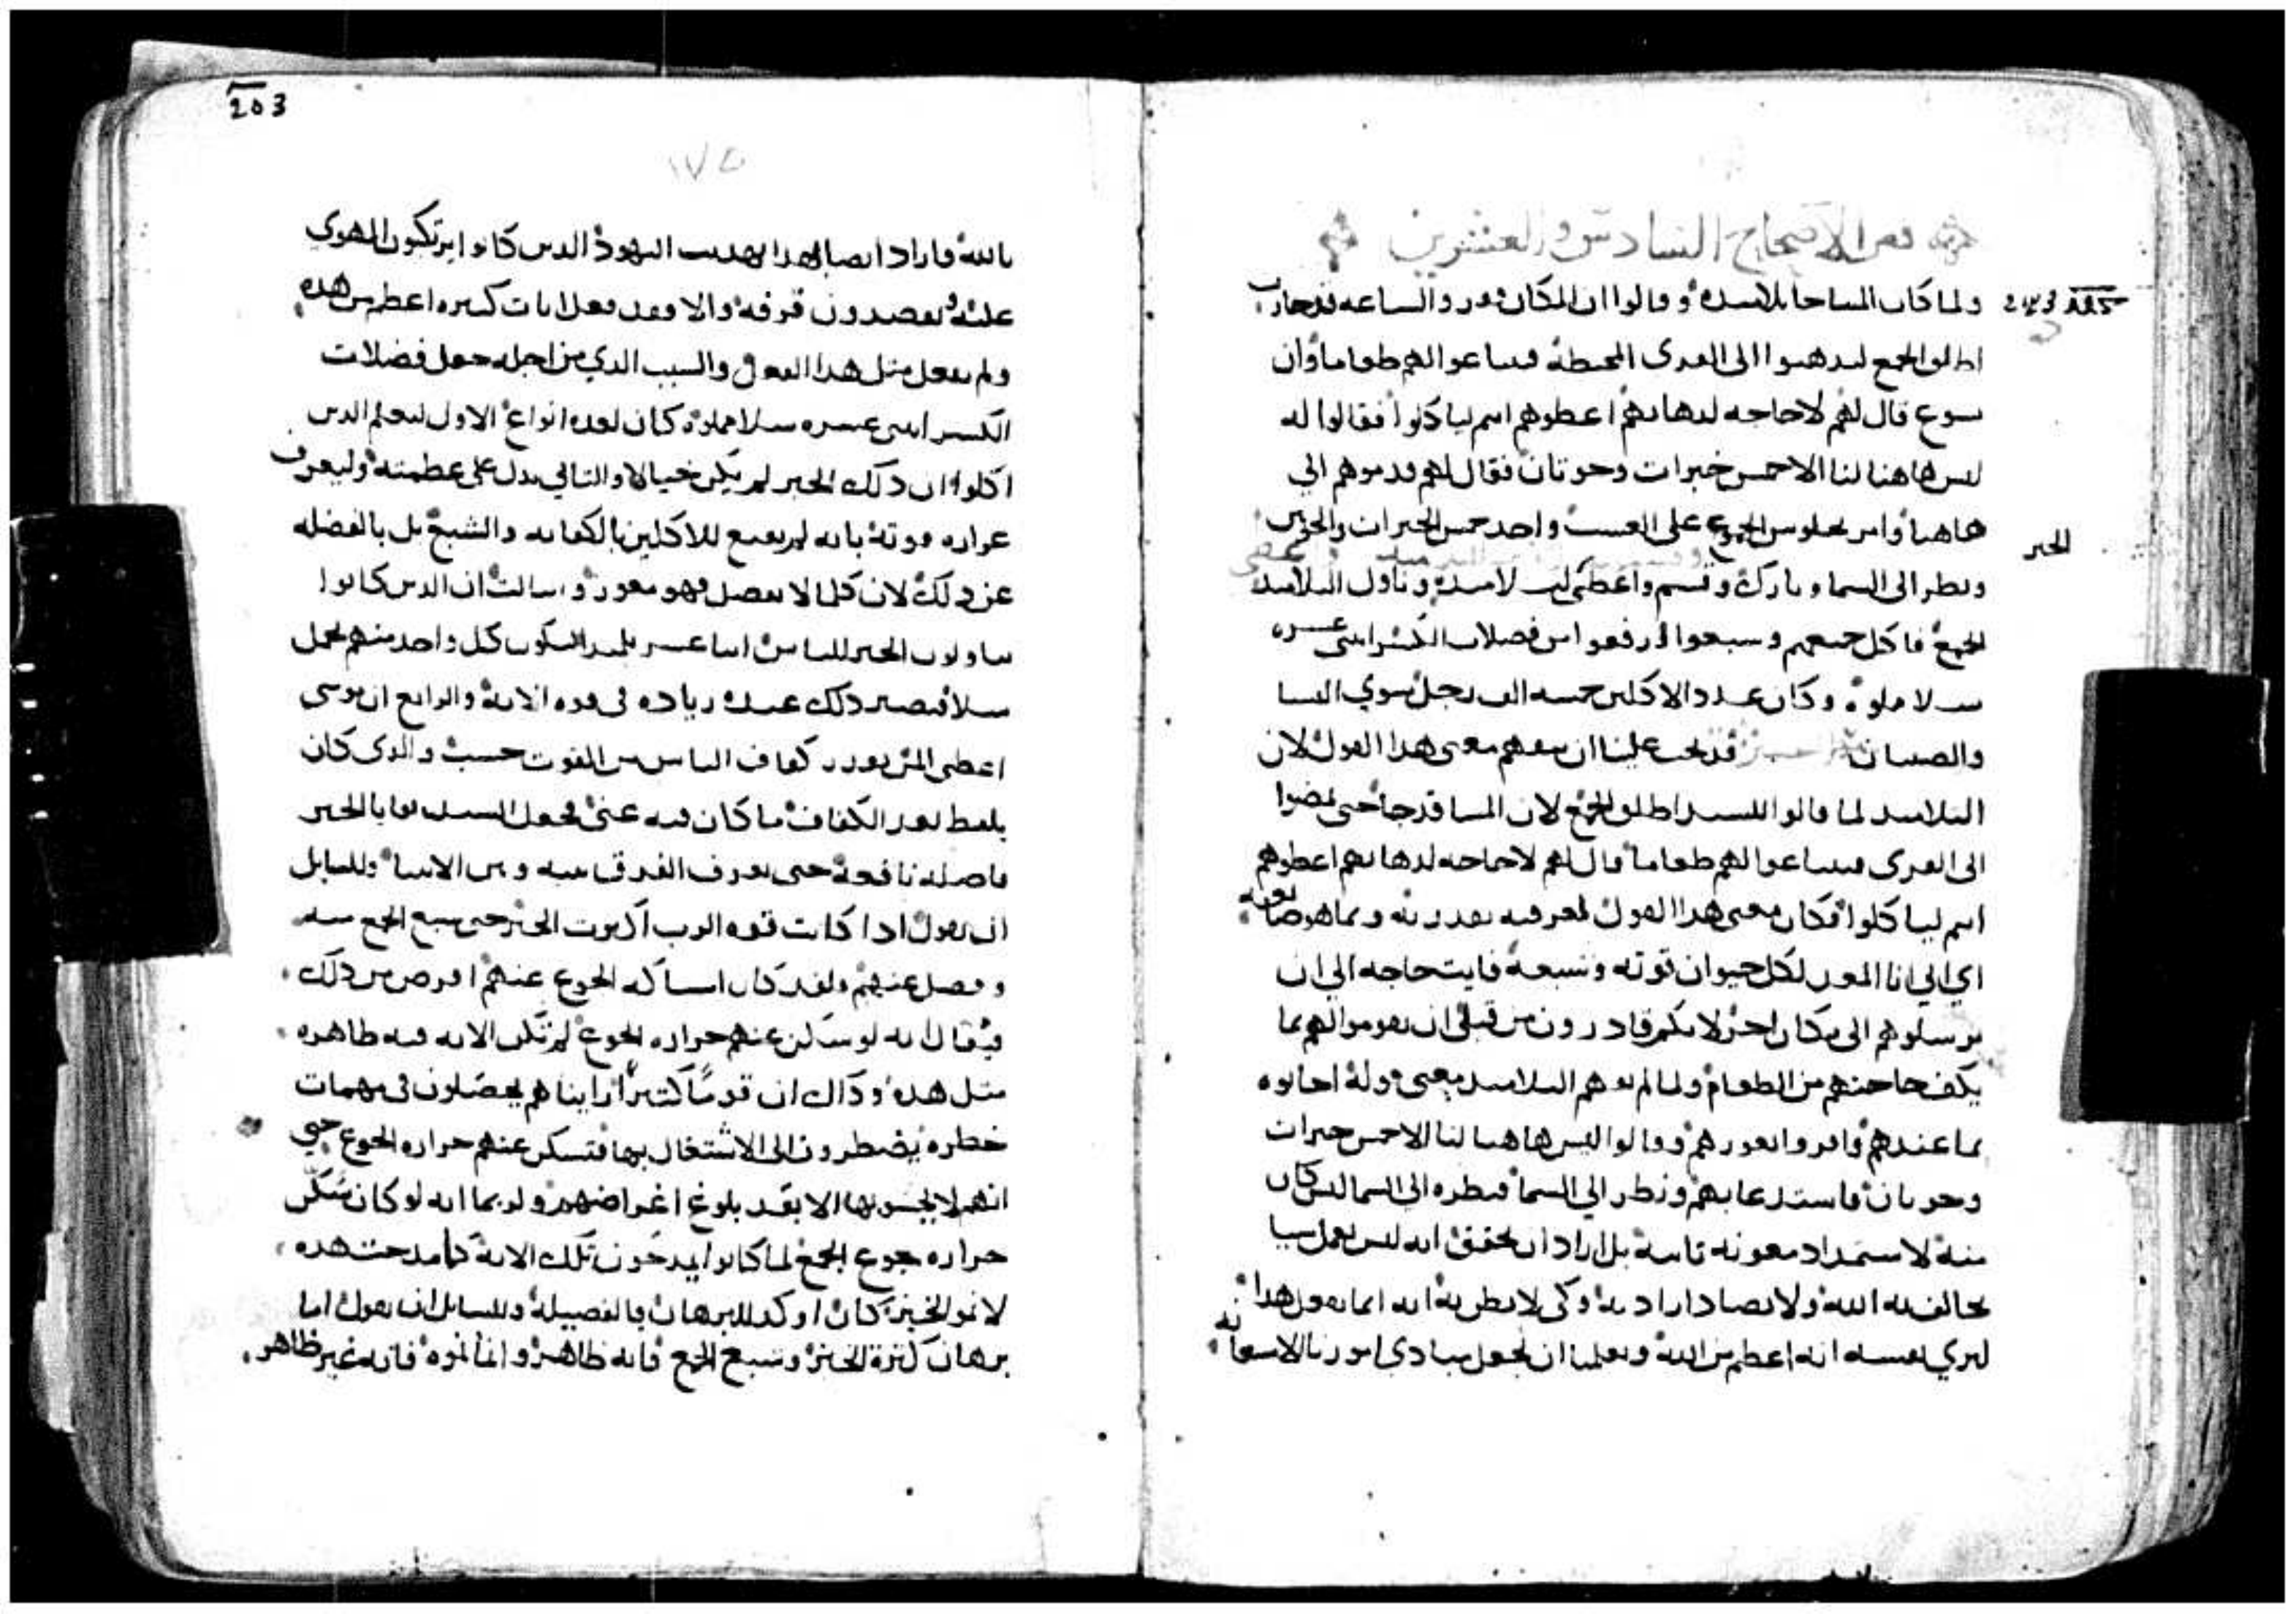 نص الاصحاح السادس والعشرين
ولما كان المسا جا تلاميذه وقالوا ان المكان قفر والساعه قد جازت
اطلق الجمع ليذهبوا الى القرى المحيطة فيبتاعوا لهم طعاما وان
يسوع قال لهم لا حاجه لذهابهم اعطوهم انتم لياكلوا فقالوا له
ليس هاهنا لنا الا خمس خبزات وحوتان فقال لهم قدموهم الي
هاهنا وامر بجلوس الجموع على العشب واخد خمس الخبزات والحوتين
الخبز
ونظر الى السما وبارك وقسم واعطى لتلاميذه وناول التلاميذ
الجمع فاكل جميعهم وشبعوا ورفعوا من فضلات الكسر اثنى عشره
سلا مملوة وكان عدد الاكلين خمسه الف رجل سوي النسا
والصبيان قد يجب علينا ان نتفهم معنى هدا القول لان
التلاميد لما قالوا للسيد اطلق الجمع لان المسا قد جا حتى يمضوا
الى القرى فيبتاعوا لهم طعاما قال لهم لا حاجه لدهابهم اعطوهم
انتم لياكلوا فكان معنى هدا القول لمعرفيه بقدرته وبما هو صانعه
اي اني انا المقرر لكل حيوان قوته وشبعه فايت حاجه الي ان
ترسلوهم الى مكان اخر لانكم قادرون من قبلي ان تقوموا لهم بما
يكف حاجتهم من الطعام ولما لم يفهم التلاميد معنى قوله اجابوه
بما عندهم فاقروا بعوزهم وقالوا ليس هاهنا لنا الا خمس خبزات
وحوتان فاستدعا بهم ونظر الي السما فنظره الى السما ليس كان
منه لاستمداد معونه تامه بل اراد ان يحقق انه ليس يعمل شيا
يخالف به الله ولا يضاد ارادته وكى لا يظن به انه انما يفعل هدا
ليري نفسه انه اعظم من الله وبعلمنا ان نجعل مبادي امورنا الاستعانه
203
١٧٥
بالله فاراد ايضا بهدا تهديب اليهود الدين كانوا يرتكبون الهوي
عليه ويقصدون قرفه والا فقد فعل ايات كتيره اعظم من هده
ولم يفعل متل هدا الفعل والسبب الدي من اجله جعل فضلات
الكسر اتنى عشره سلا مملوة كان لعده انواع الاول ليعلم الدين
اكلوا ان دلك الخبز لم يكن خيالا والتاني يدل على عظمته وليعرف
غزاره قوته بانه لم يقنع للاكلين بالكفايه والشبع بل بالفضله
عن دلك لان كلما لا يفضل فهو معوز والتالت ان الدين كانوا
يناولون الخبز للناس اتنا عشر تلميدا ليكون كل واحد منهم يحمل
سلا فيصير دلك عنده زياده فى قوه الايه والرابع ان موسى
اعطى المن بقدر كفاف الناس من القوت حسب والدى كان
يلقط بعد الكفاف ما كان فيه غنى فجعل السيد بقايا الخبز
فاضله نافعة حتى يعرف الفرق بينه وبين الانبيا وللقايل
ان يقول ادا كانت قوه الرب اكترت الخبز حتى شبع الجمع منه
وفضل عنهم ولقد كان امساكه الجوع عنهم اقرض من دلك
فيقال انه لو سكن عنهم حراره الجوع لم تكن الايه فيه ظاهره
متل هده وداك ان قوما كتيرا راينا هم يحصلون فى مهمات
خطره يضطرون الى الاشتغال بها فتسكن عنهم حراره الجوع حتي
انهم لا يحسو بها الا بعد بلوغ اغراضهم ولربما انه لو كان سكن
حراره جوع الجمع لما كانوا يمدحون تلك الايه كما مدحت هده
لانمو الخبز كان اوكد للبرهان بالفضيله وللسايل ان يقول اما
برهان كترة الخبز وشبع الجمع فانه ظاهر واما نموه فانه غير ظاهر